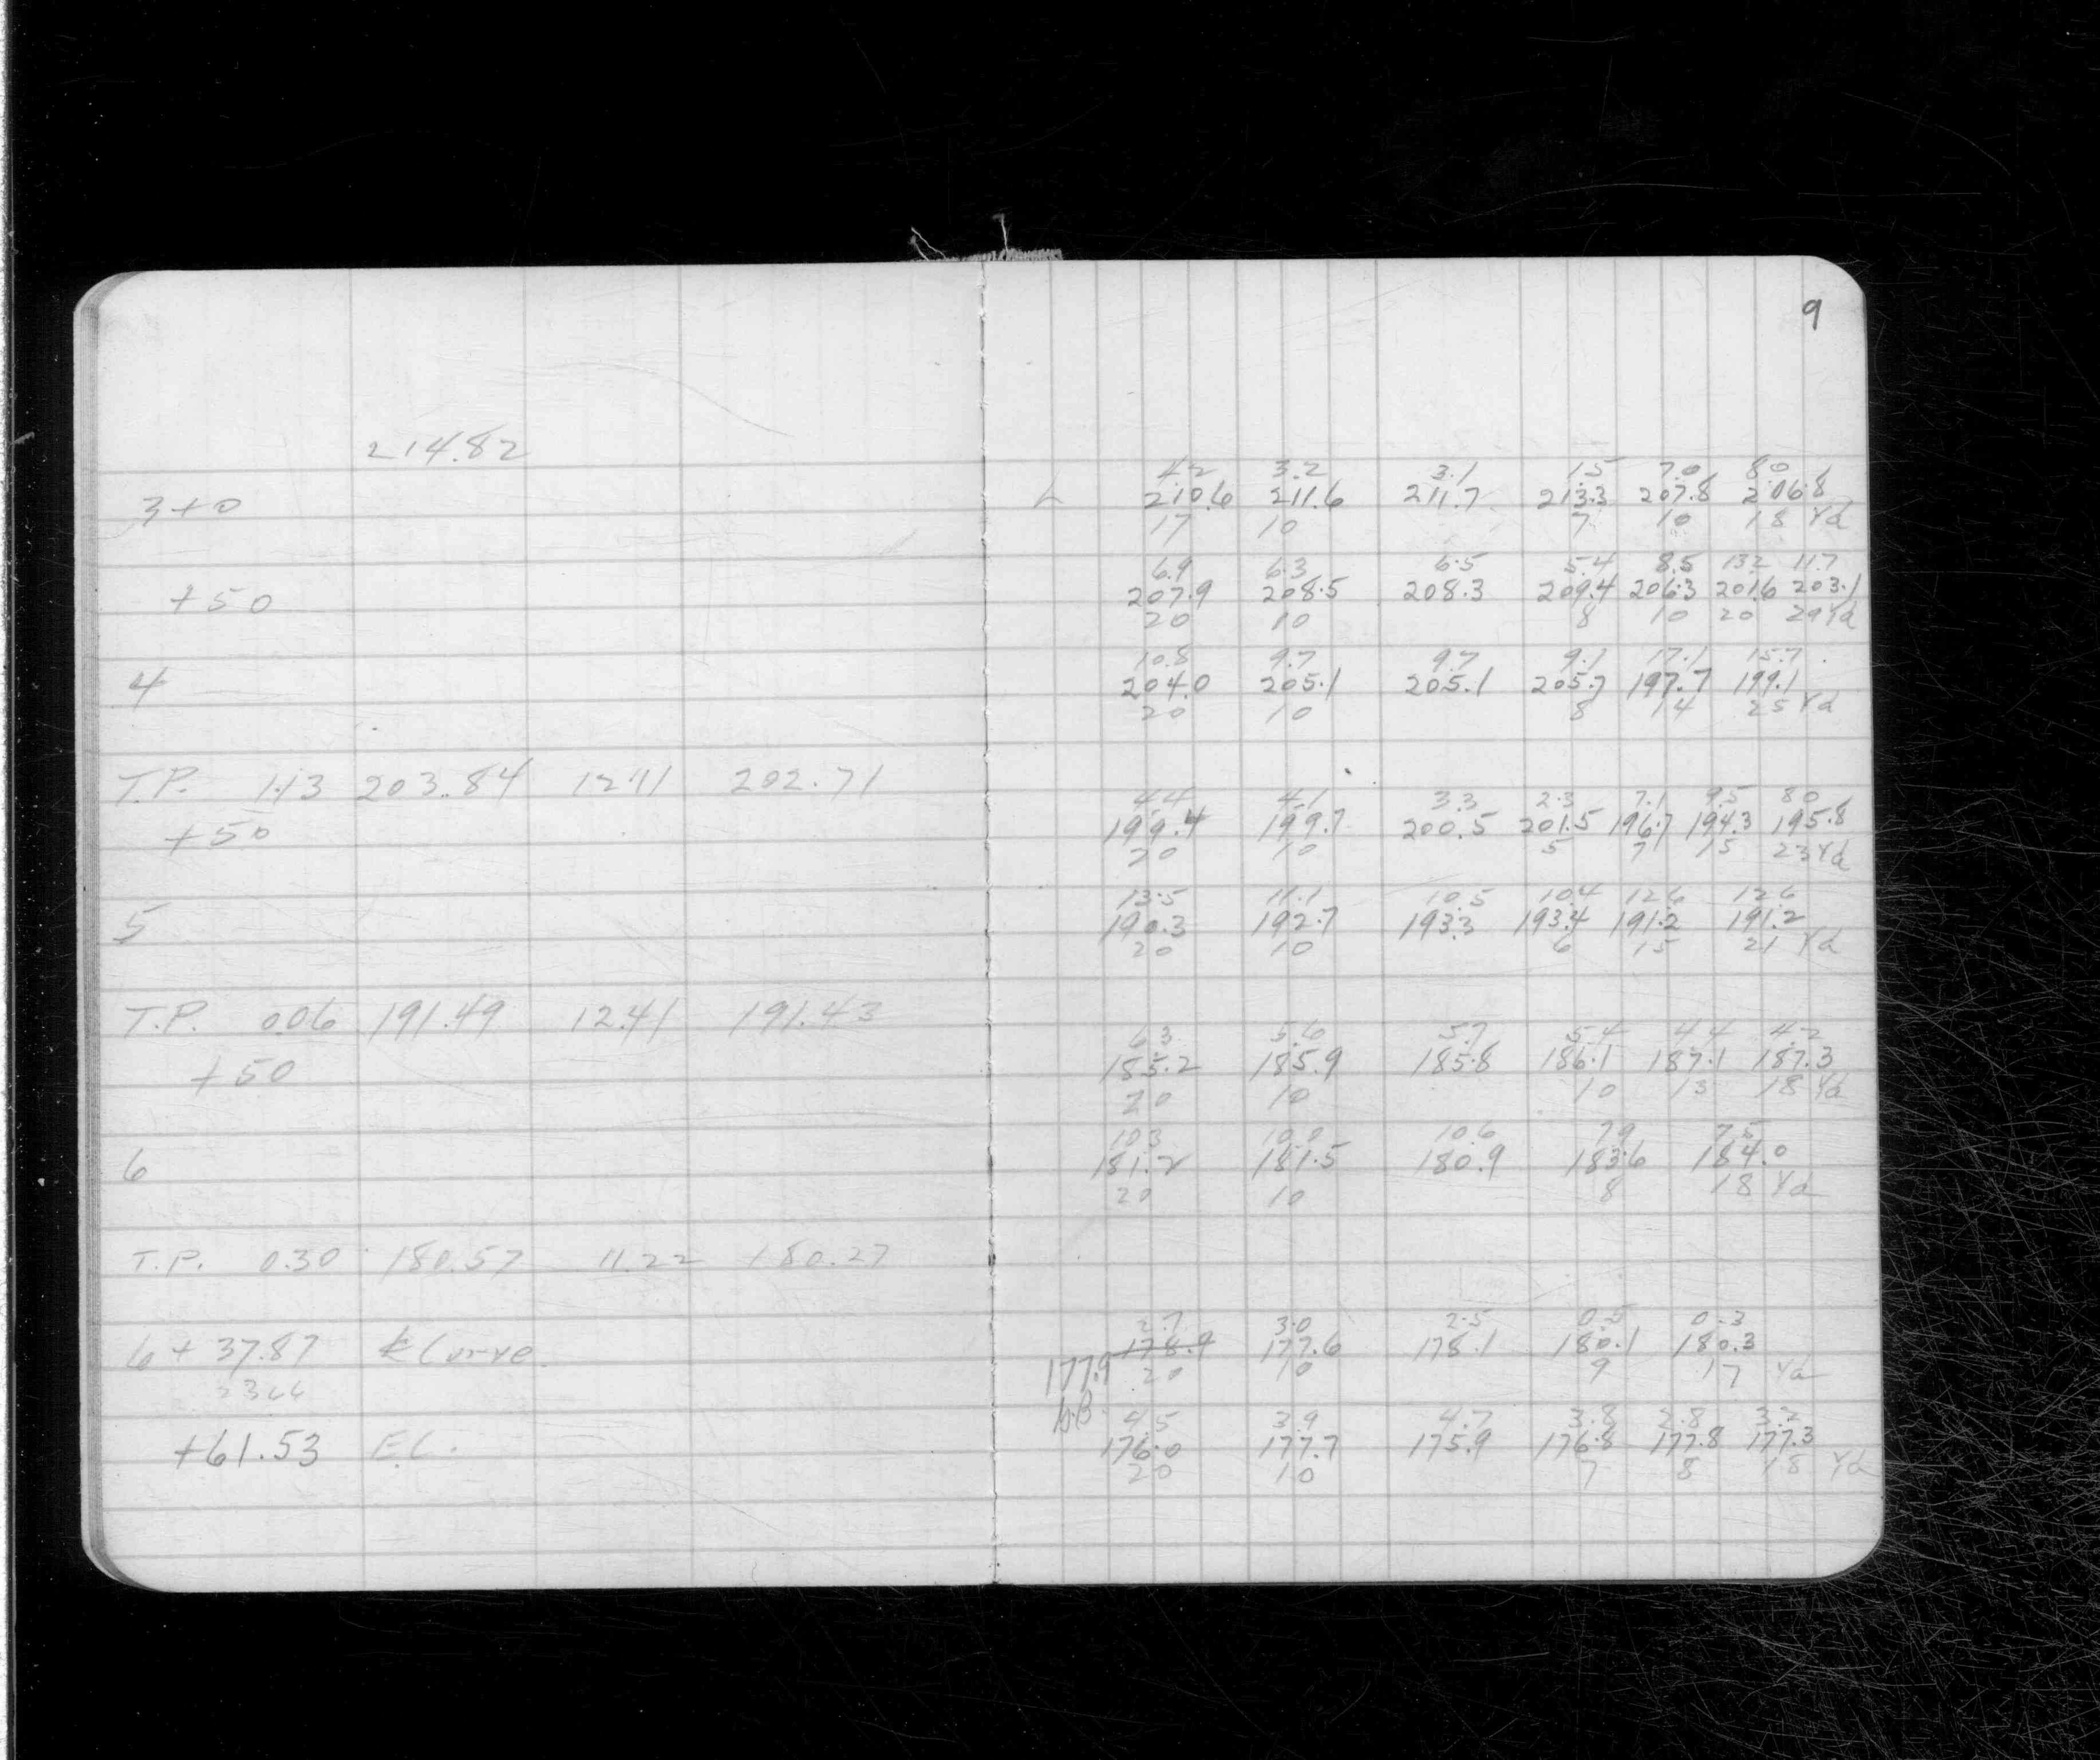 9
214.82
4.2 3.2 3.1 1.5 7.0 8.0
3+0 L 210.6 211.6 211.7 213.3 207.8 206.8
17 10 7 10 18 Yd
6.9 6.3 6.5 5.4 8.5 13.2 11.7
+50 207.9 208.5 208.3 209.4 206.3 201.6 203.1
20 10 8 10 20 29 Yd
10.8 9.7 9.7 9.1 17.1 15.7
4 204.0 205.1 205.1 205.7 197.7 199.1
20 10 8 14 25 Yd
T.P. 1.13 203.84 12.11 202.71
4.4 4.1 3.3 2.3 7.1 9.5 8.0
+50 199.4 199.7 200.5 201.5 196.7 194.3 195.8
20 10 5 7 15 23 Yd
13.5 11.1 10.5 10.4 12.6 12.6
5 190.3 192.7 193.3 193.4 191.2 191.2
20 10 6 15 21 Yd
T.P. 0.06 191.49 12.41 191.43
6.3 5.6 5.7 5.4 4.4 4.2
+50 185.2 185.9 185.8 186.1 187.1 187.3
20 10 10 13 18 Yd
10.3 10.0 10.6 7.9 7.5
6 181.2 181.5 180.9 183.6 184.0
20 10 8 18 Yd
T.P. 0.30 180.57 11.22 180.27
2.7 3.0 2.5 0.5 0.3
6+37.87 Curve 178.9 177.6 178.1 180.1 180.3
177.9 20 10 9 17 Yd
2366
4.5 3.9 4.7 3.8 2.8 3.2
+61.53 E.C. 176.0 177.7 175.9 176.8 177.8 177.3
20 10 7 8 18 Yd